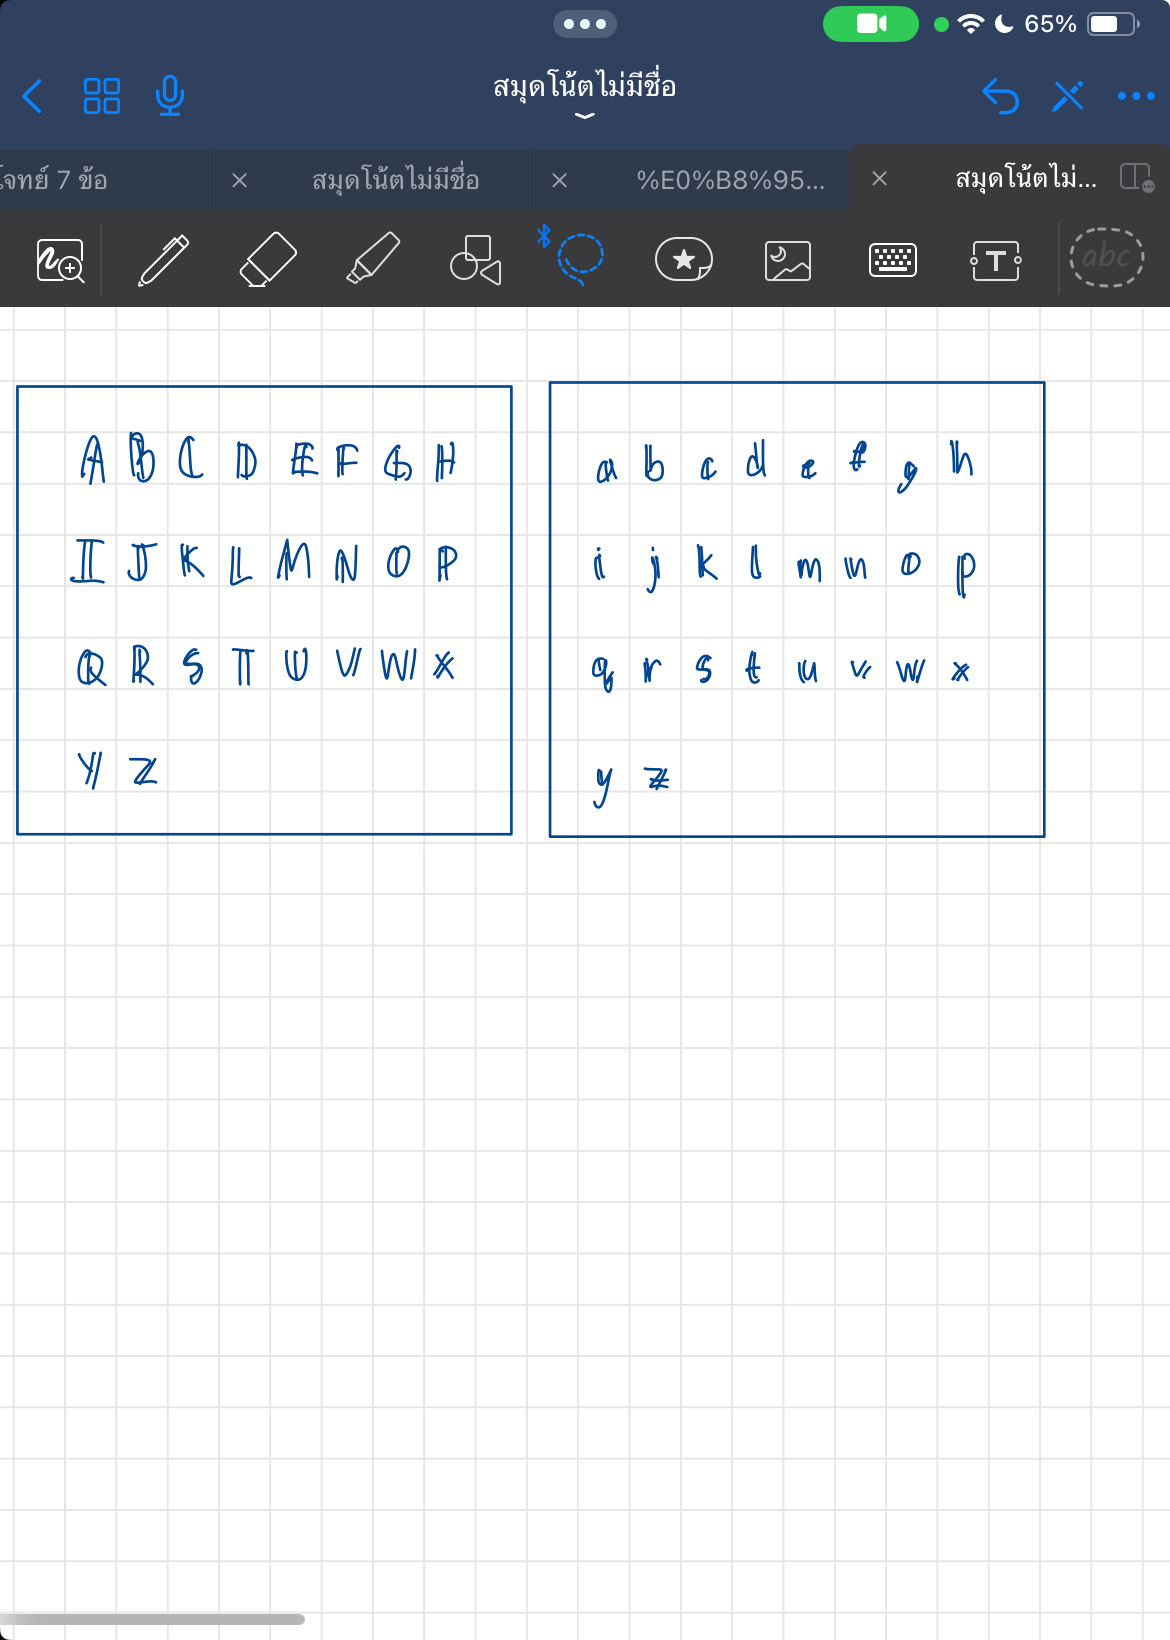 65%
สมุดโน้ตไม่มีชื่อ
จทย์ 7 ข้อ
สมุดโน้ตไม่มีชื่อ
%E0%B8%95...
สมุดโน้ตไม่...
abc
A B C D E F G H
I J K L M N O P
Q R S T U V W X
Y Z
a b c d e f g h
i j k l m n o p
q r s t u v w x
y z